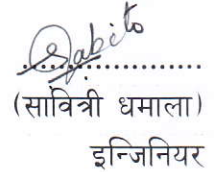 Sabita
....................
(सावित्री धमाला)
इन्जिनियर